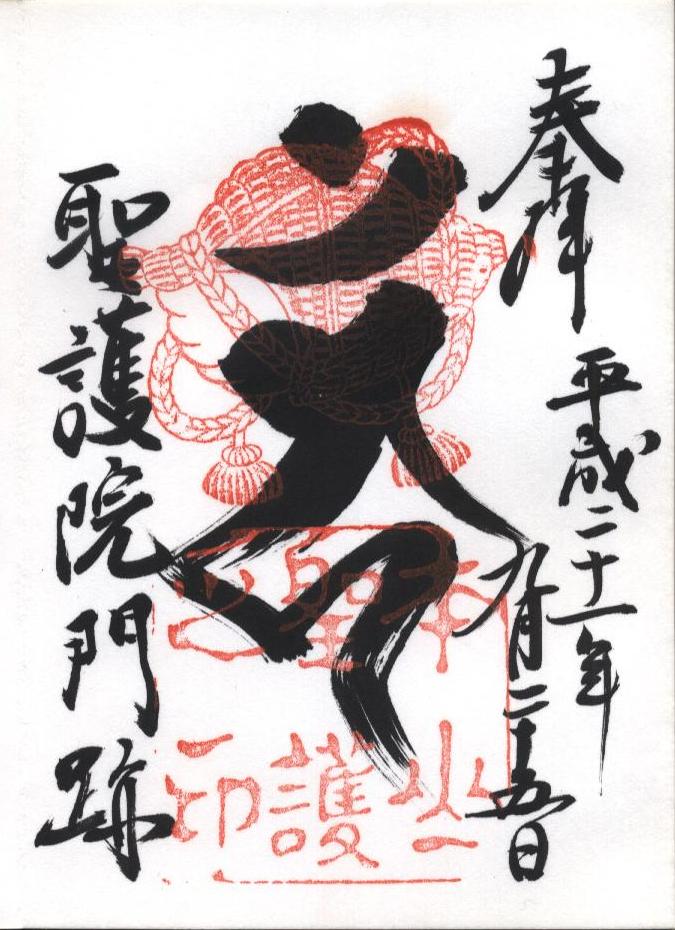 奉拝
平成二十一年
九月二十五日
聖護院門跡
本山
聖護
之印